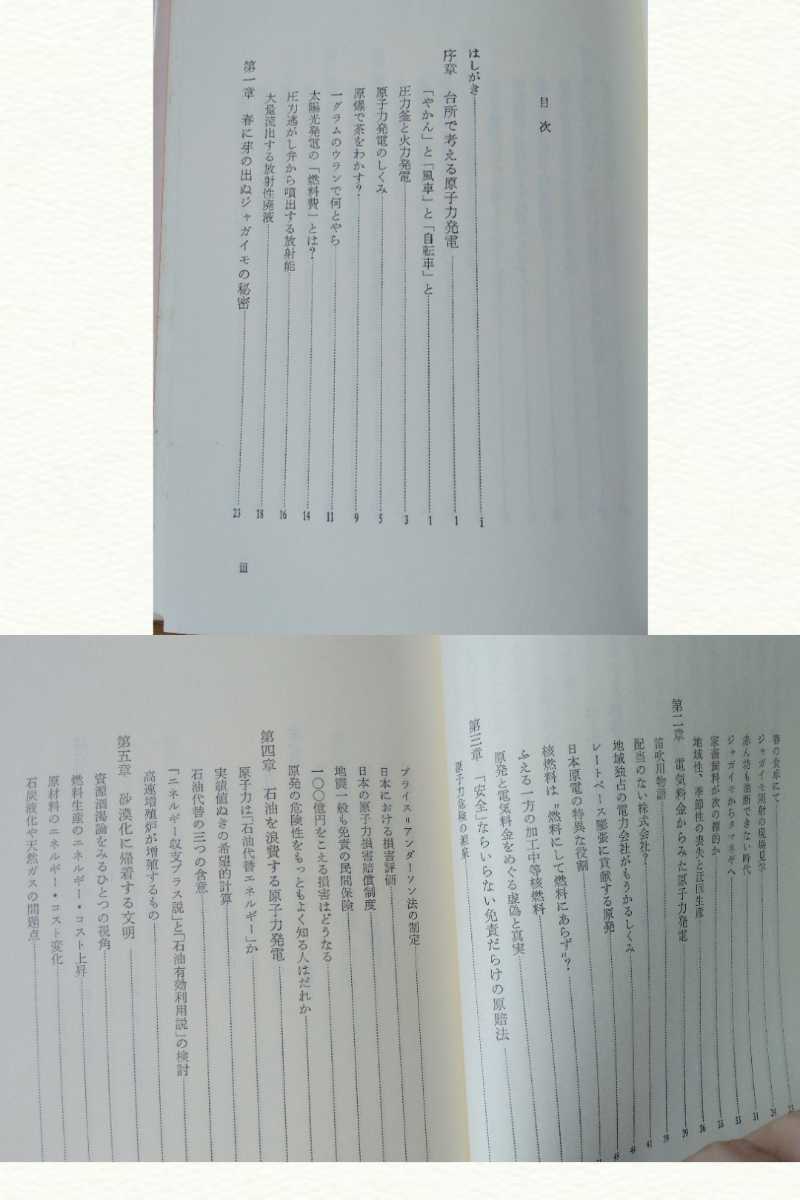 目次
はしがき……i
序章　台所で考える原子力発電……1
「やかん」と「風車」と「自転車」と……1
圧力釜と火力発電……3
原子力発電のしくみ……5
原爆で茶をわかす?……9
一グラムのウランで何とやら……11
太陽光発電の「燃料費」とは?……14
圧力逃がし弁から噴出する放射能……16
大量流出する放射性廃液……18
第一章　春に芽の出ぬジャガイモの秘密……23
iii
春の食卓にて
ジャガイモ照射の現場見学
赤ん坊も油断できない時代
ジャガイモからタマネギへ
家畜飼料が次の標的か
地域性、季節性の喪失と迂回生産
第二章　電気料金からみた原子力発電
笛吹川物語
配当のない株式会社?
地域独占の電力会社がもうかるしくみ
レートベース膨張に貢献する原発
日本原電の特異な役割
核燃料は"燃料にして燃料にあらず"?
ふえる一方の加工中等核燃料
原発と電気料金をめぐる虚偽と真実
第三章　「安全」ならいらない免責だらけの原賠法
原子力危険の素来
プライス=アンダーソン法の制定
日本における損害評価
日本の原子力損害賠償制度
地震一般も免責の民間保険
一〇〇億円をこえる損害はどうなる
原発の危険性をもっともよく知る人はだれか
第四章　石油を浪費する原子力発電
原子力は「石油代替エネルギー」か
実績値ぬきの希望的計算
石油代替の三つの含意
「エネルギー収支プラス説」と「石油有効利用説」の検討
高速増殖炉が増殖するもの
第五章　砂漠化に帰着する文明
資源涸渇論をみるひとつの視角
燃料生産のエネルギー・コスト上昇
原材料のエネルギー・コスト変化
石炭液化や天然ガスの問題点